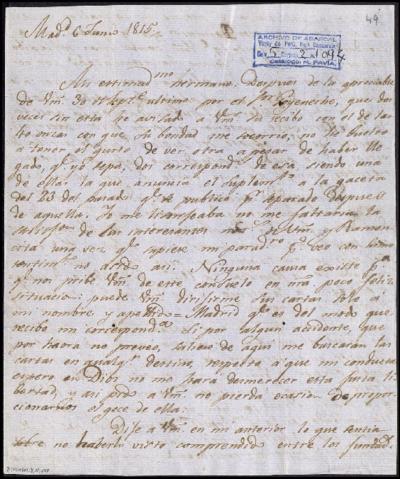 49
Mad.d 6 Junio 1815,,
ARCHIVO DE ABASCAL
Virrey del Perú
5 2 1094
Mi estimad mo hermano. Despues de la apreciable
de Vm. de Sept.e ultimo por el S.r Goyeneche, que dos
veces sin esta he avisado a Vm. su recibo con el de la
onzas con que su bondad me socorrio, no he buelto
a tener el gusto de ver otra a pesar de haber lle
gado, q.e yo sepa, dos correspond. de esa siendo una
de ellas la que anuncia el suplem.to a la gaceta
del 23 del pasado q.e se publicó p.r separado despues
de aquella. Se me no me faltaria la
satisfac.n de las interesantes de Vm. y Ramon
cita una vez q.e supiese mi pero veo con
sentim.to no Ninguna causa existe p.a
q.e nos pribe Vm. de este consuelo en nra poco feliz
situacion: puede Vm. dirigirme sus cartas solo a
mi nombre y apellido = Madrid q.e es del modo que
recibo mi correspond.a Si por algun accidente, que
por haora no preveo, saliese de aqui me buscarán las
cartas en qualq.r destino, respecto a que mi conducta
espero en Dios no me hará desmerecer esta justa li
bertad, y asi pido a Vm. no pierda ocasion de propor
cionarnos el goce de ella.
Dije a Vm. en mi anterior lo que sentia
no haberlo visto comprendido entre los fundad.